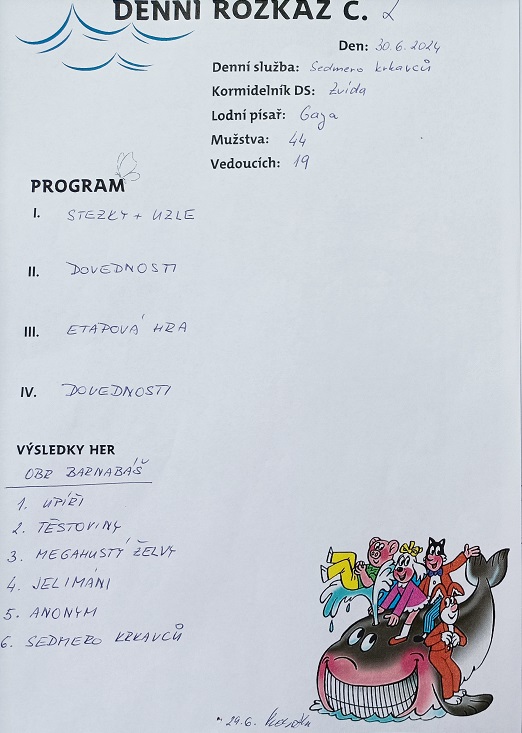 DENNÍ ROZKAZ Č. 2
Den: 30.6.2024
Denní služba: Sedmero krkavců
Kormidelník DS: Zvída
Lodní písař: Gaga
Mužstva: 44
Vedoucích: 19
PROGRAM
I. STEZKY + UZLE
II. DOVEDNOSTI
III. ETAPOVÁ HRA
IV. DOVEDNOSTI
VÝSLEDKY HER
OBR BARNABÁŠ
1. UPÍŘI
2. TĚSTOVINY
3. MEGAHUSTÝ ŽELVY
4. JELIMÁNI
5. ANONYM
6. SEDMERO KRKAVCŮ
29.6.